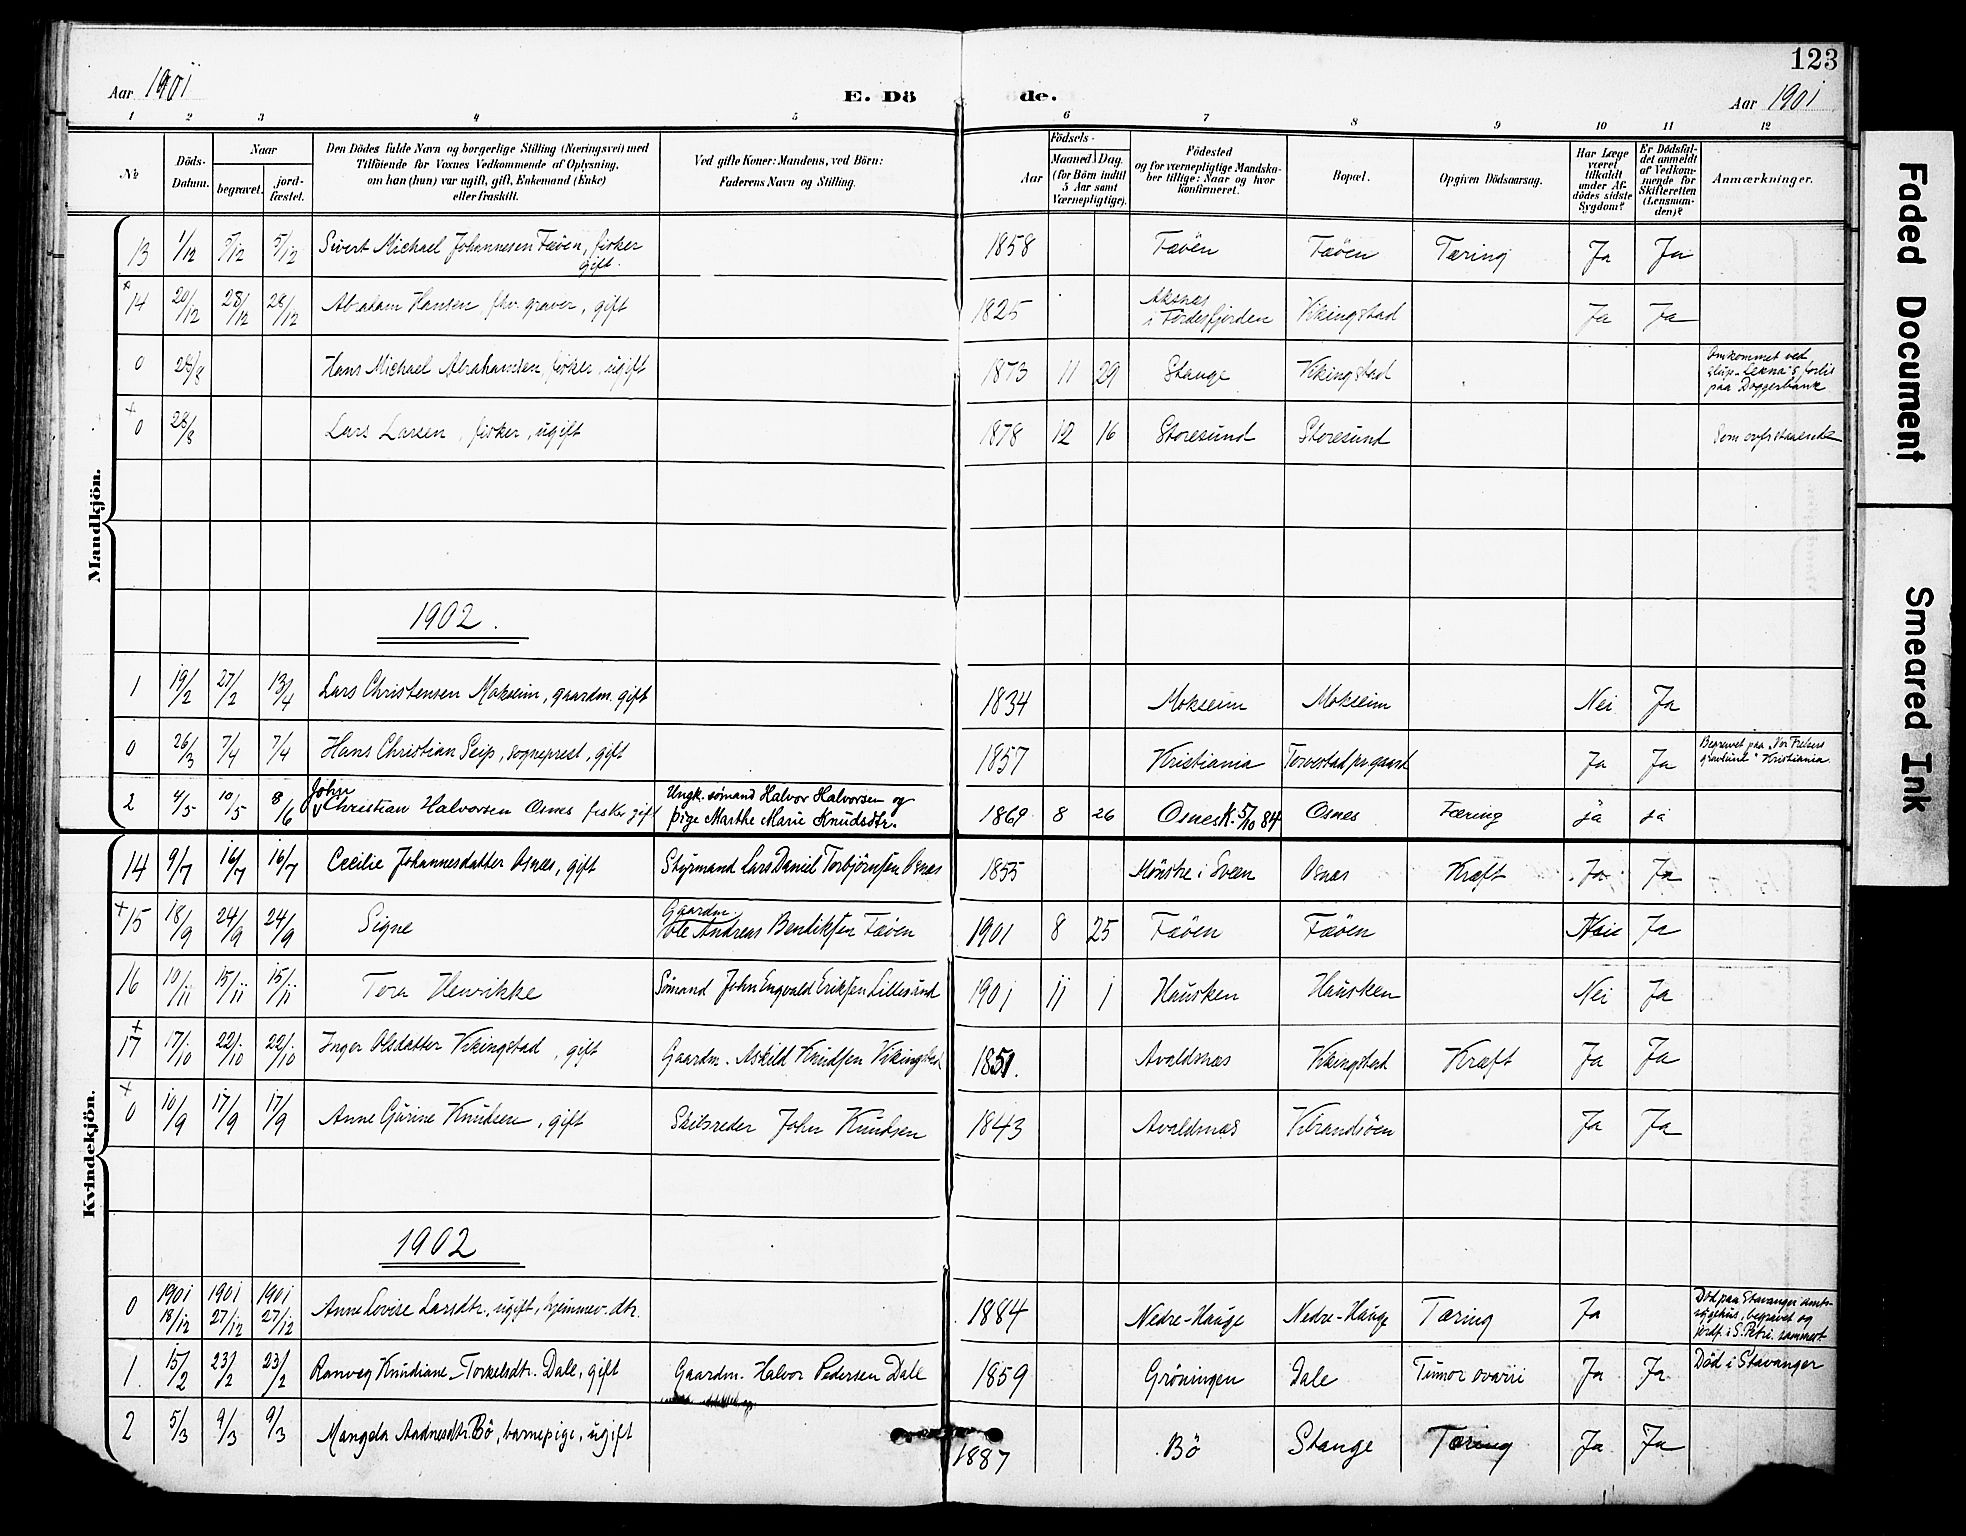 123
Aar 1901 E. Dö de. Aar 1901
1 2 3 4 5 6 7 8 9 10 11 12
No
Döds-Datum.
Naar
begravet.
jord-fæstet.
Den Dödes fulde Navn og borgerlige Stilling (Næringsvei) med
Tilföiende for Voxnes Vedkommende af Oplysning,
om han (hun) var ugift, gift, Enkemand (Enke)
eller fraskilt.
Ved gifte Koner: Mandens, ved Börn:
Faderens Navn og Stilling.
Födsels-
Aar
Maaned Dag.
(for Börn indtil
5 Aar samt
Værnepligtige).
Födested
og for værnepligtige Mandska-
ber tillige: Naar og hvor
konfirmeret.
Bopæl.
Opgiven Dödsaarsag.
Har Læge
været
tilkaldt
under Af-
dödes sidste
Sygdom?
Er Dödsfal-
det anmeldt
af Vedkom-
mende for
Skifteretten
(Lensman-
den)?
Anmærkninger.
Mandkjön.
13 1/12 5/12 5/12 Sivert Michael Johannesen Fæöen, fisker gift. 1858 Fæöen Fæöen Tæring Ja Ja
+ 14 20/12 28/12 28/12 Abraham Hansen fhv. graver, gift 1825 Aksnes i Fördesfjorden Vikingstad Ja Ja
0 28/8 Hans Michael Abrahamsen, fisker, ugift 1873 11 29 Stange Vikingstad Omkommet ved slup "Lekna"s forlis paa Doggerbank
+ 0 28/8 Lars Larsen, fisker, ugift 1878 12 16 Storesund Storesund Som ovfrstaaende
1902.
1 19/2 27/2 13/4 Lars Christensen Mokseim, gaardm. gift 1834 Mokseim Mokseim Nei Ja
0 26/3 7/4 7/4 Hans Christian Seip, sogneprest, gift 1857 Kristiania Torvestad pr.gaard Ja Ja Begravet paa "Vor Frelsers gravlund" Kristiania.
2 4/5 10/5 8/6 John Christian Halvorsen Osnes fisker gift Ungk. sömand Halvor Halvorsen og pige Marthe Marie Knudsdtr. 1869 8 26 Osnes K. 5/10 84 Osnes Tæring ja ja
Kvindekjön.
14 9/7 16/7 16/7 Cecilie Johannesdatter Osnes, gift Styrmand Lars Daniel Torbjörnsen Osnes 1855 Mönstre i Sveen Osnes Kræft Ja Ja
+ 15 18/9 24/9 24/9 Signe Gaardm. Ole Andreas Bendiksen Fæöen 1901 8 25 Fæöen Fæöen Nei Ja
16 10/11 15/11 15/11 Tora Henrikke Sömand John Engvald Eriksen Lillesund 1901 11 1 Hausken Hausken Nei Ja
+ 17 17/10 22/10 22/10 Inger Olsdatter Vikingstad, gift Gaardm. Askild Knudsen Vikingstad 1851. Avaldsnes Vikingstad Kræft Ja Ja
+ 0 10/9 17/9 17/9 Anne Gurine Knudsen, gift Skibsreder John Knudsen 1843 Avaldsnes Vibrandsöen Ja Ja
1902
0 1901 18/12 1901 27/12 1901 27/12 Anne Lovise Larsdtr., ugift, hjemmev. dtr. 1884 Nedre-Hauge Nedre-Hauge Tæring Ja Död paa Stavanger amts-sygehus, begravet og jordf. i S. Petri sammest.
1. 15/2 23/2 23/2 Ranveg Knudiane Torkelsdtr. Dale, gift Gaardm. Halvor Pedersen Dale 1859 Gröningen Dale Tumor ovarii Ja Ja Död i Stavanger
2 5/3 9/3 9/3 Mangda Aadnesdtr. Bö, barnepige, ugift 1887 Bö Stange Tæring Ja Ja
Faded Document
Smeared Ink